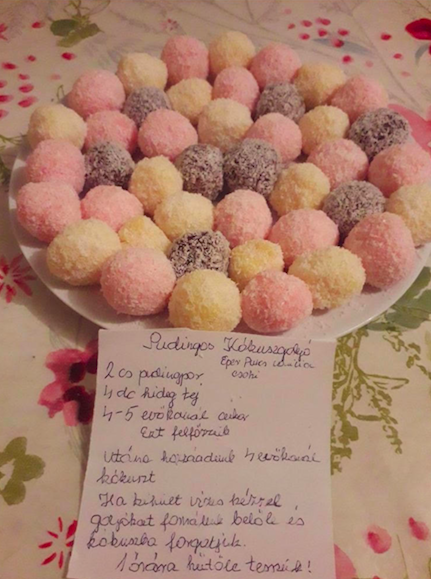 Pudingos Kókuszgolyó
Eper Puncs vanília
csoki
2 cs pudingpor
4 dc hideg tej
4-5 evőkanál cukor
Ezt felfőzzük
Utána hozzáadunk 4 evőkanál
kókuszt
Ha kihűlt vizes kézzel
golyókat formálunk belőle és
kókuszba forgatjuk.
1 órára hűtőbe tesszük!